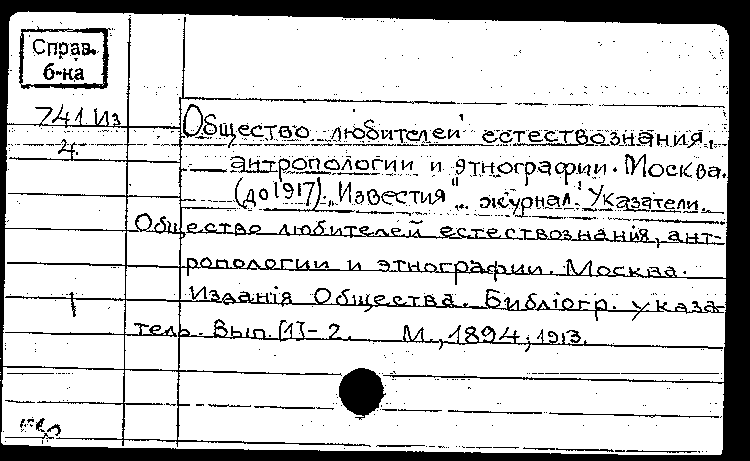 Справ.
б-ка
741 Из
4
Общество любителей естествознания,
антропологии и этнографии. Москва.
(до 1917). "Известия", журнал. Указатели.
Общество любителей естествознанія, ант-
ропологии и этнографии. Москва.
Изданія Общества. Библіогр. указа-
1
тель. Вып. [1]-2. М., 1894; 1913.